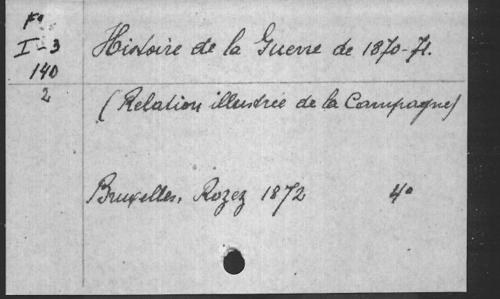 Fº
I-3
140
2
Histoire de la Guerre de 1870-71.
(Relation illustrée de la Campagne)
Bruxelles, Rozez 1872 4º